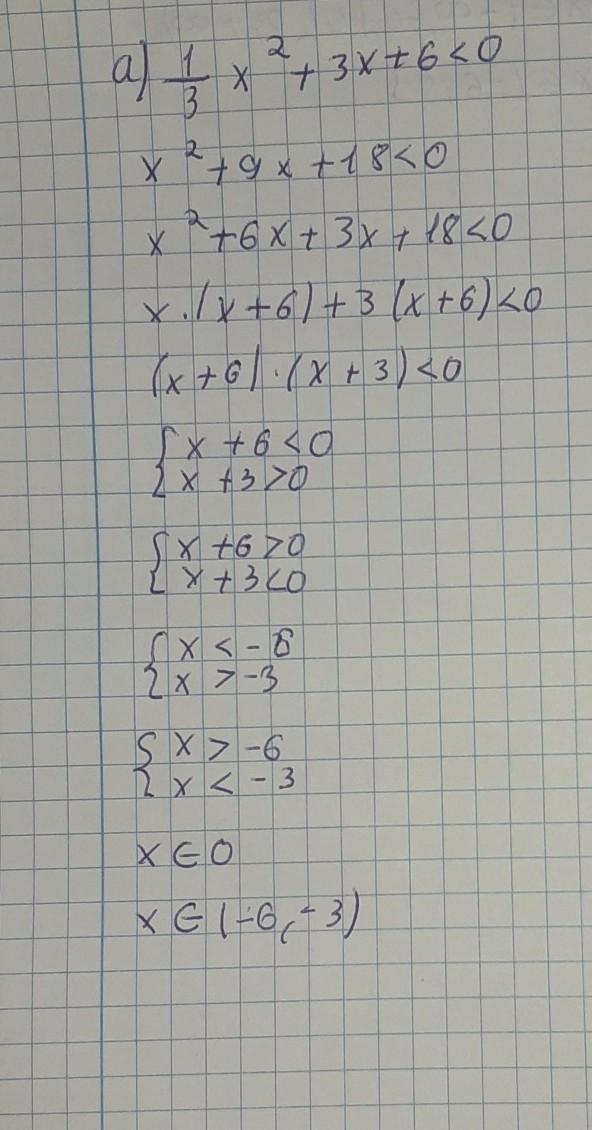 а) 1/3 x² + 3x + 6 < 0
x² + 9x + 18 < 0
x² + 6x + 3x + 18 < 0
x · (x + 6) + 3 (x + 6) < 0
(x + 6) · (x + 3) < 0
{ x + 6 < 0
x + 3 > 0
{ x + 6 > 0
x + 3 < 0
{ x < - 6
x > -3
{ x > -6
x < - 3
x ∈ 0
x ∈ (-6, -3)